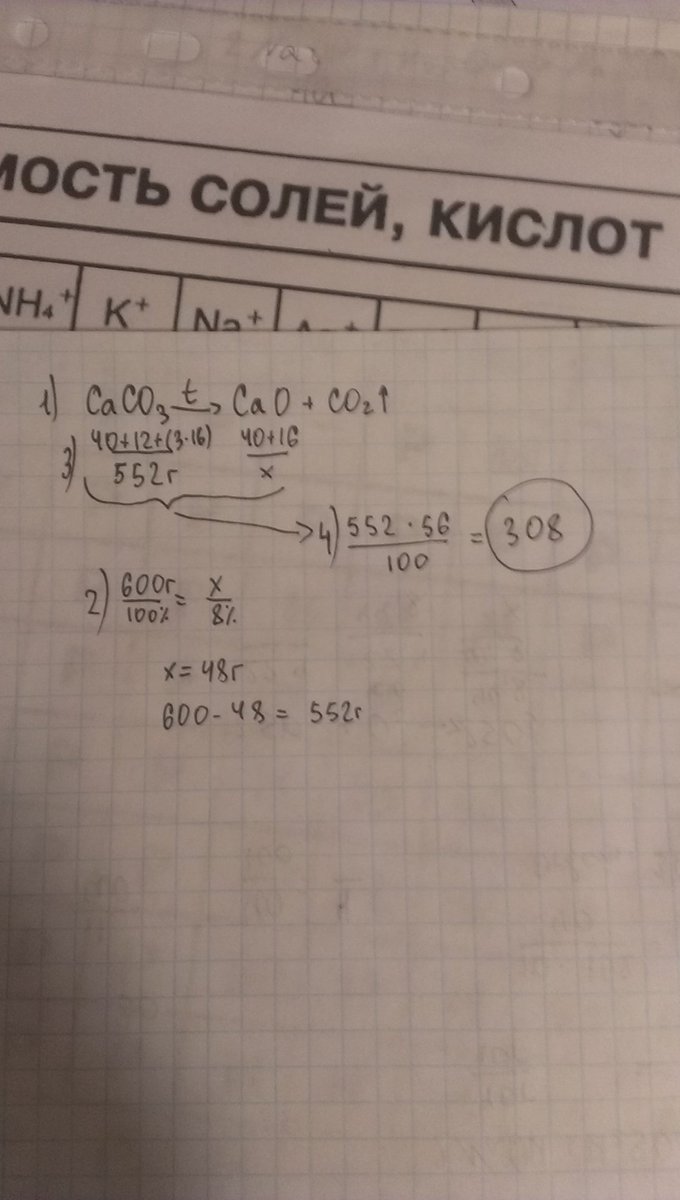 МОСТЬ СОЛЕЙ, КИСЛОТ
NH₄⁺ K⁺ Na⁺
1) CaCO₃ t→ CaO + CO₂↑
40+12+(3·16) 40+16
3) 552г x
4) 552 · 56 / 100 = 308
2) 600г / 100% = x / 8%
x = 48г
600 - 48 = 552г